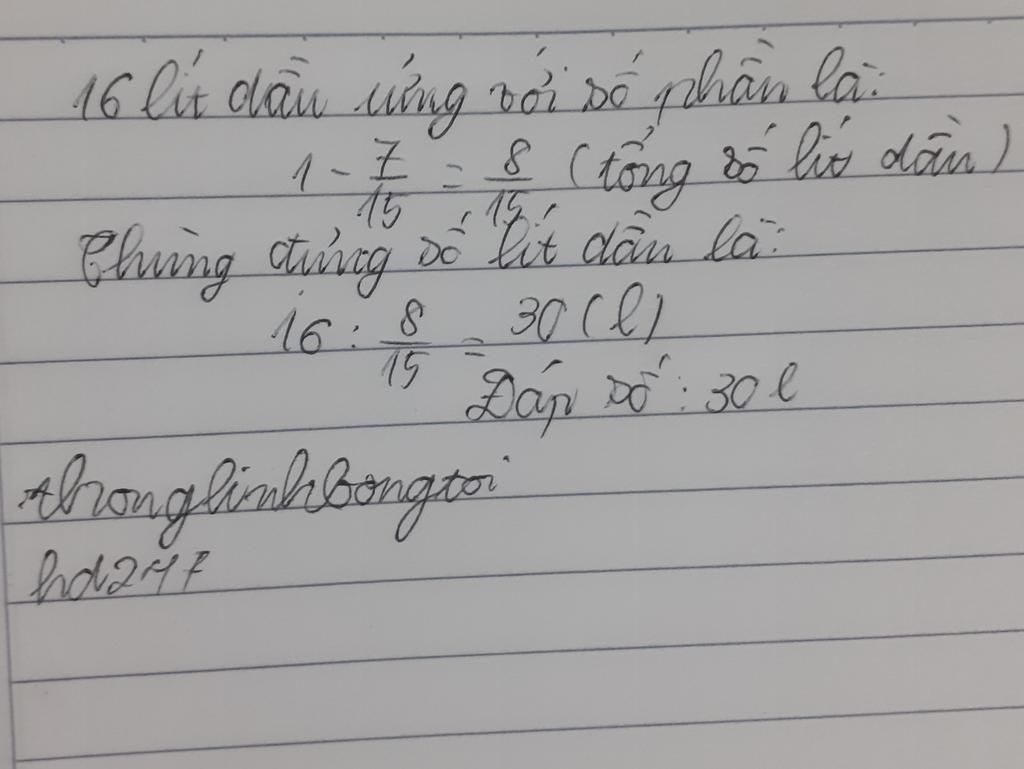 16 lít dầu ứng với số phần là:
1 - 7/15 = 8/15 (tổng số lít dầu)
Thùng đựng số lít dầu là:
16 : 8/15 = 30 (l)
Đáp số: 30 l
thronglinhbongtoi